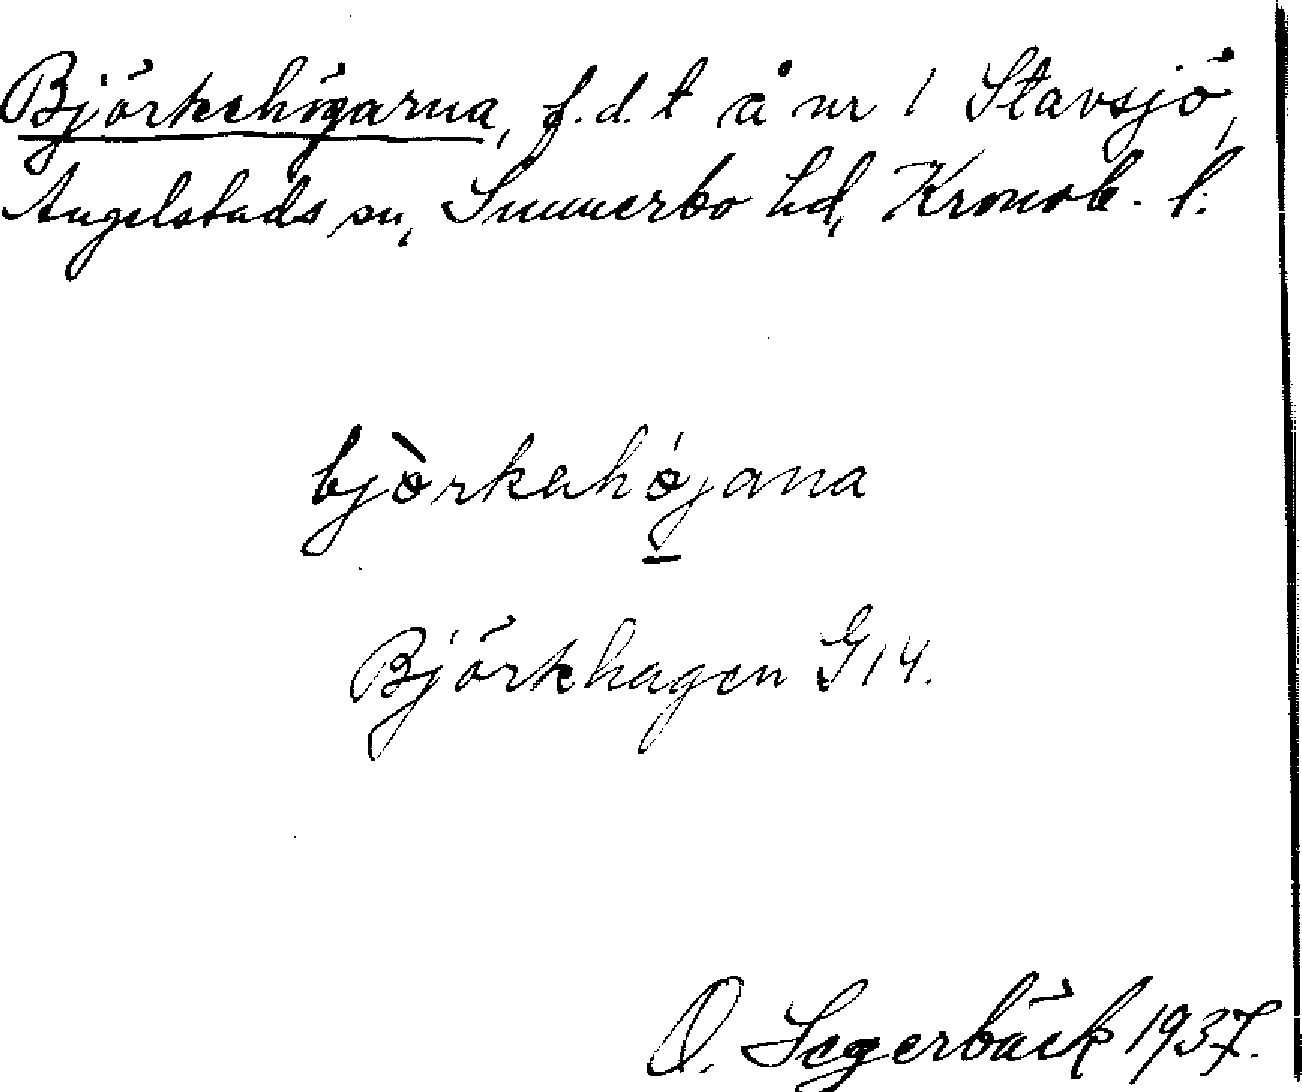 Björkehögarna, f.d. t å nr 1 Stavsjö,
Angelstads sn, Sunnerbo hd, Kronob. l.
bjòrkahǿjana
Björkhagen G14.
O. Segerbäck 1937.